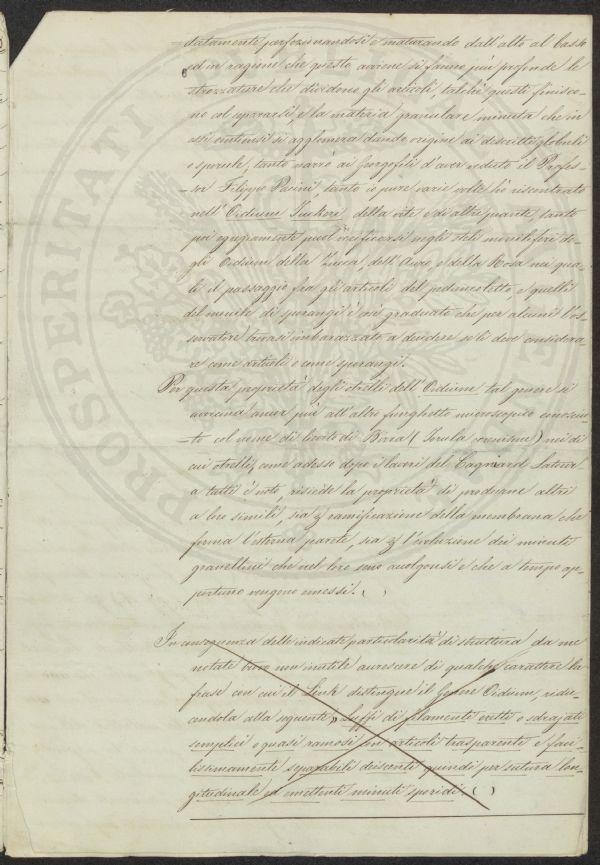 datamente perfezionandosi e maturando dall'alto al basso
ed in ragione che questo avviene si fanno più profonde le
strozzature che dividono gli articoli, talchè questi finisco-
no col separarsi, e la materia granulare minuta che in
essi contiensi si agglomera dando origine ai descritti globuli
o sporule, tanto narrò ai Georgofili d'aver veduto il Profes-
sor Filippo Pacini, tanto io pure varie volte ho riscontrato
nell'Oidium Tuckeri della vite e di altre piante, tanto
poi egregiamente può verificarsi negli steli moniliferi de-
gli Oidium della Zucca, dell' e della Rosa nei qua-
li il passaggio fra gli articoli del peduncoletto, e quelli
del monile di sporangi è sì graduato che per alcuni l'os-
servatore trovasi imbarazzato a decidere se li deve considera-
re come articoli o come sporangi.
Per questa proprietà degli otrelli dell'Oidium tal genere si
avvicina ancor più all'altro funghetto microscopico conosciu-
to col nome di lievito di Birra (Torula cerevisiae) nei di
cui otrelli, come adesso dopo i lavori del Cagniard Latour
a tutti è noto, risiede la proprietà di produrne altri
a loro simili, sia p ramificazione della membrana che
forma l'esterna parete, sia p l'evoluzione dei minuti
granellini che nel loro seno accolgonsi e che a tempo op-
portuno vengono emessi. ( )
In conseguenza delle indicate particolarità di struttura da me
notate non inutile accrescere di qualche carattere la
frase con cui il Link distingue il Genere Oidium, ridu-
cendola alla seguente; Ciuffi di filamenti eretti o sdrajati
semplici o quasi ramosi in articoli trasparenti e faci-
lissimamente separabili deiscenti quindi per sutura lon-
gitudinale ed emettenti minuti sporidi. ( )